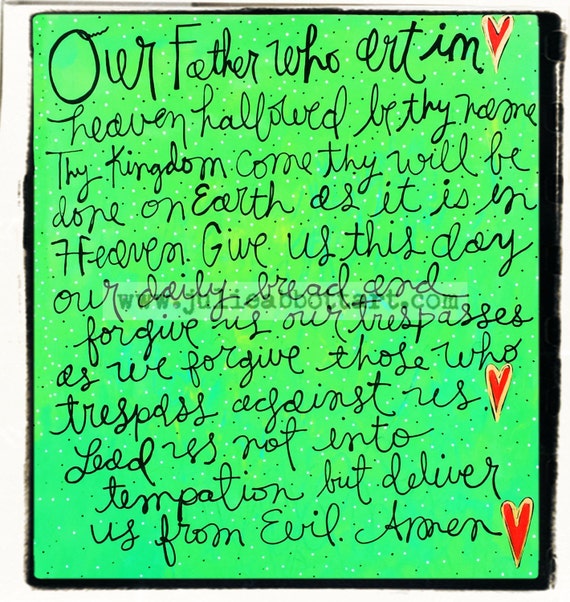 Our Father who art in
heaven hallowed be thy name
Thy Kingdom come thy will be
done on Earth as it is in
Heaven. Give us this day
our daily bread and
www.julieabbottart.com
forgive us our trespasses
as we forgive those who
trespass against us.
Lead us not into
tempation but deliver
us from Evil. Amen